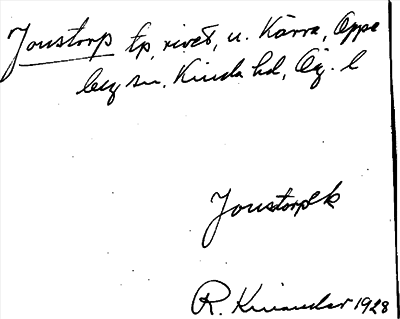 Jonstorp tp, rivet, u. Kärra, Oppe
by sn, Kinda hd, Ög. l
Jonstorp
R. Kinander 1928